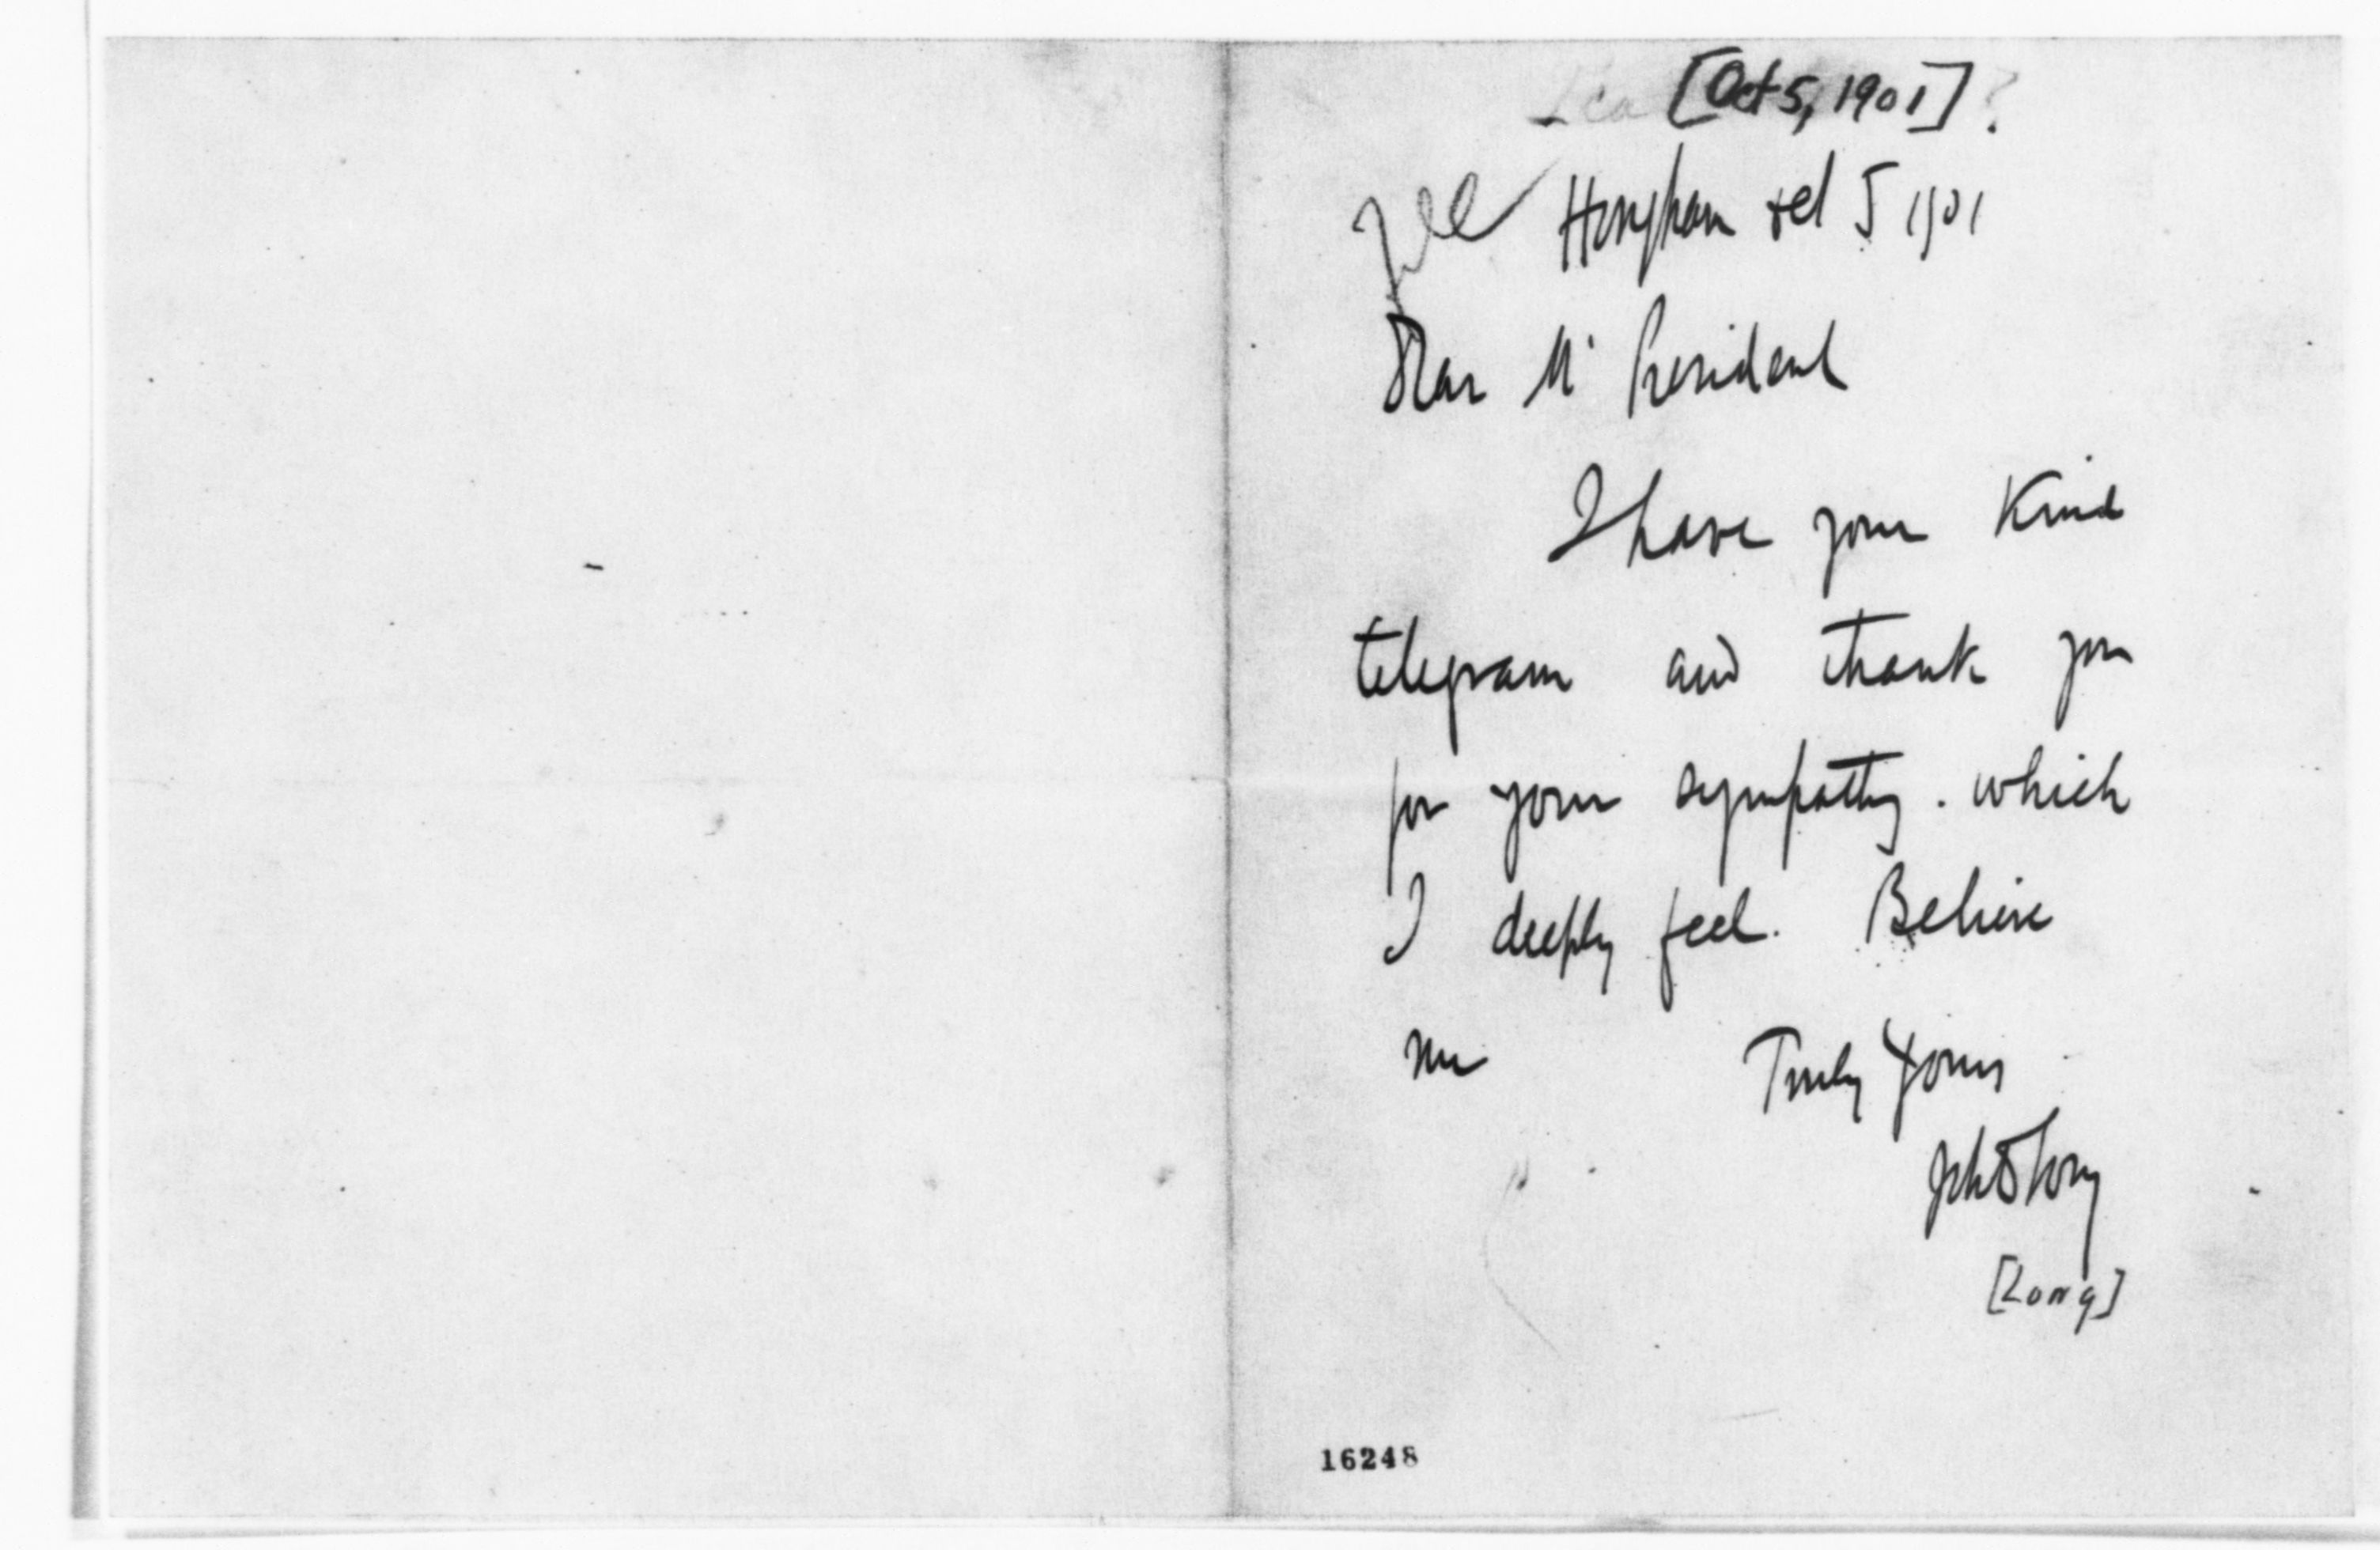 [Oct 5, 1901]?
Hingham Oct 5 1901
Dear Mr President
I have your kind
telegram and thank you
for your sympathy. which
I deeply feel. Believe
me Truly Yours
John D Long
[Long]
16248